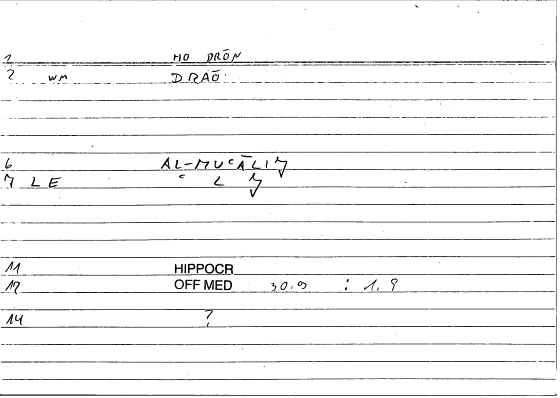 1 HO DRŌN
2 wm DRAŌ:
6 AL-MUʿĀLIǦ
7 LE ʿ L Ǧ
11 HIPPOCR
12 OFF MED : 1.9
14 ?